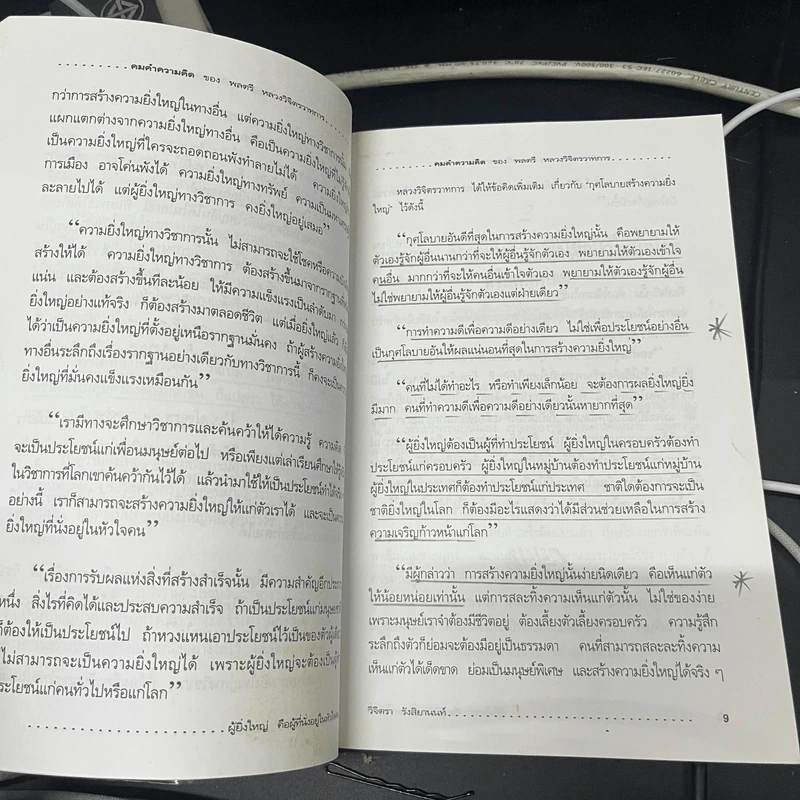 .........คมคำความคิด ของ พลตรี หลวงวิจิตรวาทการ.........
กว่าการสร้างความยิ่งใหญ่ในทางอื่น แต่ความยิ่งใหญ่ทางวิชาการนั้น
แผกแตกต่างจากความยิ่งใหญ่ทางอื่น คือเป็นความยิ่งใหญ่
เป็นความยิ่งใหญ่ที่ใครจะถอดถอนพังทำลายไม่ได้ ความยิ่งใหญ่
การเมือง อาจโค่นพังได้ ความยิ่งใหญ่ทางทรัพย์ ความเป็น
ละลายไปได้ แต่ผู้ยิ่งใหญ่ทางวิชาการ คงยิ่งใหญ่อยู่เสมอ”
“ความยิ่งใหญ่ทางวิชาการนั้น ไม่สามารถจะใช้โชคหรือความ
สร้างให้ได้ ความยิ่งใหญ่ทางวิชาการ ต้องสร้างขึ้นมาจากรากฐาน
แน่น และต้องสร้างขึ้นทีละน้อย ให้มีความแข็งแรงเป็นลำดับมา
ยิ่งใหญ่อย่างแท้จริง ก็ต้องสร้างมาตลอดชีวิต แต่เมื่อยิ่งใหญ่แล้ว
ได้ว่าเป็นความยิ่งใหญ่ที่ตั้งอยู่เหนือรากฐานมั่นคง ถ้าผู้สร้างความยิ่ง
ทางอื่นระลึกถึงเรื่องรากฐานอย่างเดียวกับทางวิชาการนี้ ก็คงจะเป็น
ยิ่งใหญ่ที่มั่นคงแข็งแรงเหมือนกัน”
“เรามีทางจะศึกษาวิชาการและค้นคว้าให้ได้ความรู้ ความคิด
จะเป็นประโยชน์แก่เพื่อนมนุษย์ต่อไป หรือเพียงแต่เล่าเรียนศึกษา
ในวิชาการที่โลกเขาค้นคว้ากันไว้ได้ แล้วนำมาใช้ให้เป็นประโยชน์
อย่างนี้ เราก็สามารถจะสร้างความยิ่งใหญ่ให้แก่ตัวเราได้ และจะเป็น
ยิ่งใหญ่ที่นั่งอยู่ในหัวใจคน”
“เรื่องการรับผลแห่งสิ่งที่สร้างสำเร็จนั้น มีความสำคัญอีก
หนึ่ง สิ่งไรที่คิดได้และประสบความสำเร็จ ถ้าเป็นประโยชน์แก่มนุษย
ก็ต้องให้เป็นประโยชน์ไป ถ้าหวงแหนเอาประโยชน์ไว้เป็นของตัว
ไม่สามารถจะเป็นความยิ่งใหญ่ได้ เพราะผู้ยิ่งใหญ่จะต้องเป็น
ประโยชน์แก่คนทั่วไปหรือแก่โลก”
ผู้ยิ่งใหญ่ คือผู้ที่นั่งอยู่ใน
.........คมคำความคิด ของ พลตรี หลวงวิจิตรวาทการ.........
หลวงวิจิตรวาทการ ได้ให้ข้อคิดเพิ่มเติม เกี่ยวกับ “กุศโลบายสร้างความยิ่ง
ใหญ่” ไว้ดังนี้
“กุศโลบายอันดีที่สุดในการสร้างความยิ่งใหญ่นั้น คือพยายามให้
ตัวเองรู้จักผู้อื่นนานกว่าที่จะให้ผู้อื่นรู้จักตัวเอง พยายามให้ตัวเองเข้าใจ
คนอื่น มากกว่าที่จะให้คนอื่นเข้าใจตัวเอง พยายามให้ตัวเองรู้จักผู้อื่น
ไม่ใช่พยายามให้ผู้อื่นรู้จักตัวเองแต่ฝ่ายเดียว”
“การทำความดีเพื่อความดีอย่างเดียว ไม่ใช่เพื่อประโยชน์อย่างอื่น
เป็นกุศโลบายอันให้ผลแน่นอนที่สุดในการสร้างความยิ่งใหญ่”
“คนที่ไม่ได้ทำอะไร หรือทำเพียงเล็กน้อย จะต้องการผลยิ่งใหญ่ยิ่ง
มีมาก คนที่ทำความดีเพื่อความดีอย่างเดียวนั้นหายากที่สุด”
“ผู้ยิ่งใหญ่ต้องเป็นผู้ที่ทำประโยชน์ ผู้ยิ่งใหญ่ในครอบครัวต้องทำ
ประโยชน์แก่ครอบครัว ผู้ยิ่งใหญ่ในหมู่บ้านต้องทำประโยชน์แก่หมู่บ้าน
ผู้ยิ่งใหญ่ในประเทศก็ต้องทำประโยชน์แก่ประเทศ ชาติใดต้องการจะเป็น
ชาติยิ่งใหญ่ในโลก ก็ต้องมีอะไรแสดงว่าได้มีส่วนช่วยเหลือในการสร้าง
ความเจริญก้าวหน้าแก่โลก”
“มีผู้กล่าวว่า การสร้างความยิ่งใหญ่นั้นง่ายนิดเดียว คือเห็นแก่ตัว
ให้น้อยหน่อยเท่านั้น แต่การสละทิ้งความเห็นแก่ตัวนั้น ไม่ใช่ของง่าย
เพราะมนุษย์เราจำต้องมีชีวิตอยู่ ต้องเลี้ยงตัวเลี้ยงครอบครัว ความรู้สึก
ระลึกถึงตัวก็ย่อมจะต้องมีอยู่เป็นธรรมดา คนที่สามารถสละละทิ้งความ
เห็นแก่ตัวได้เด็ดขาด ย่อมเป็นมนุษย์พิเศษ และสร้างความยิ่งใหญ่ได้จริง ๆ
วิจิตรา รังสิยานนท์ 9